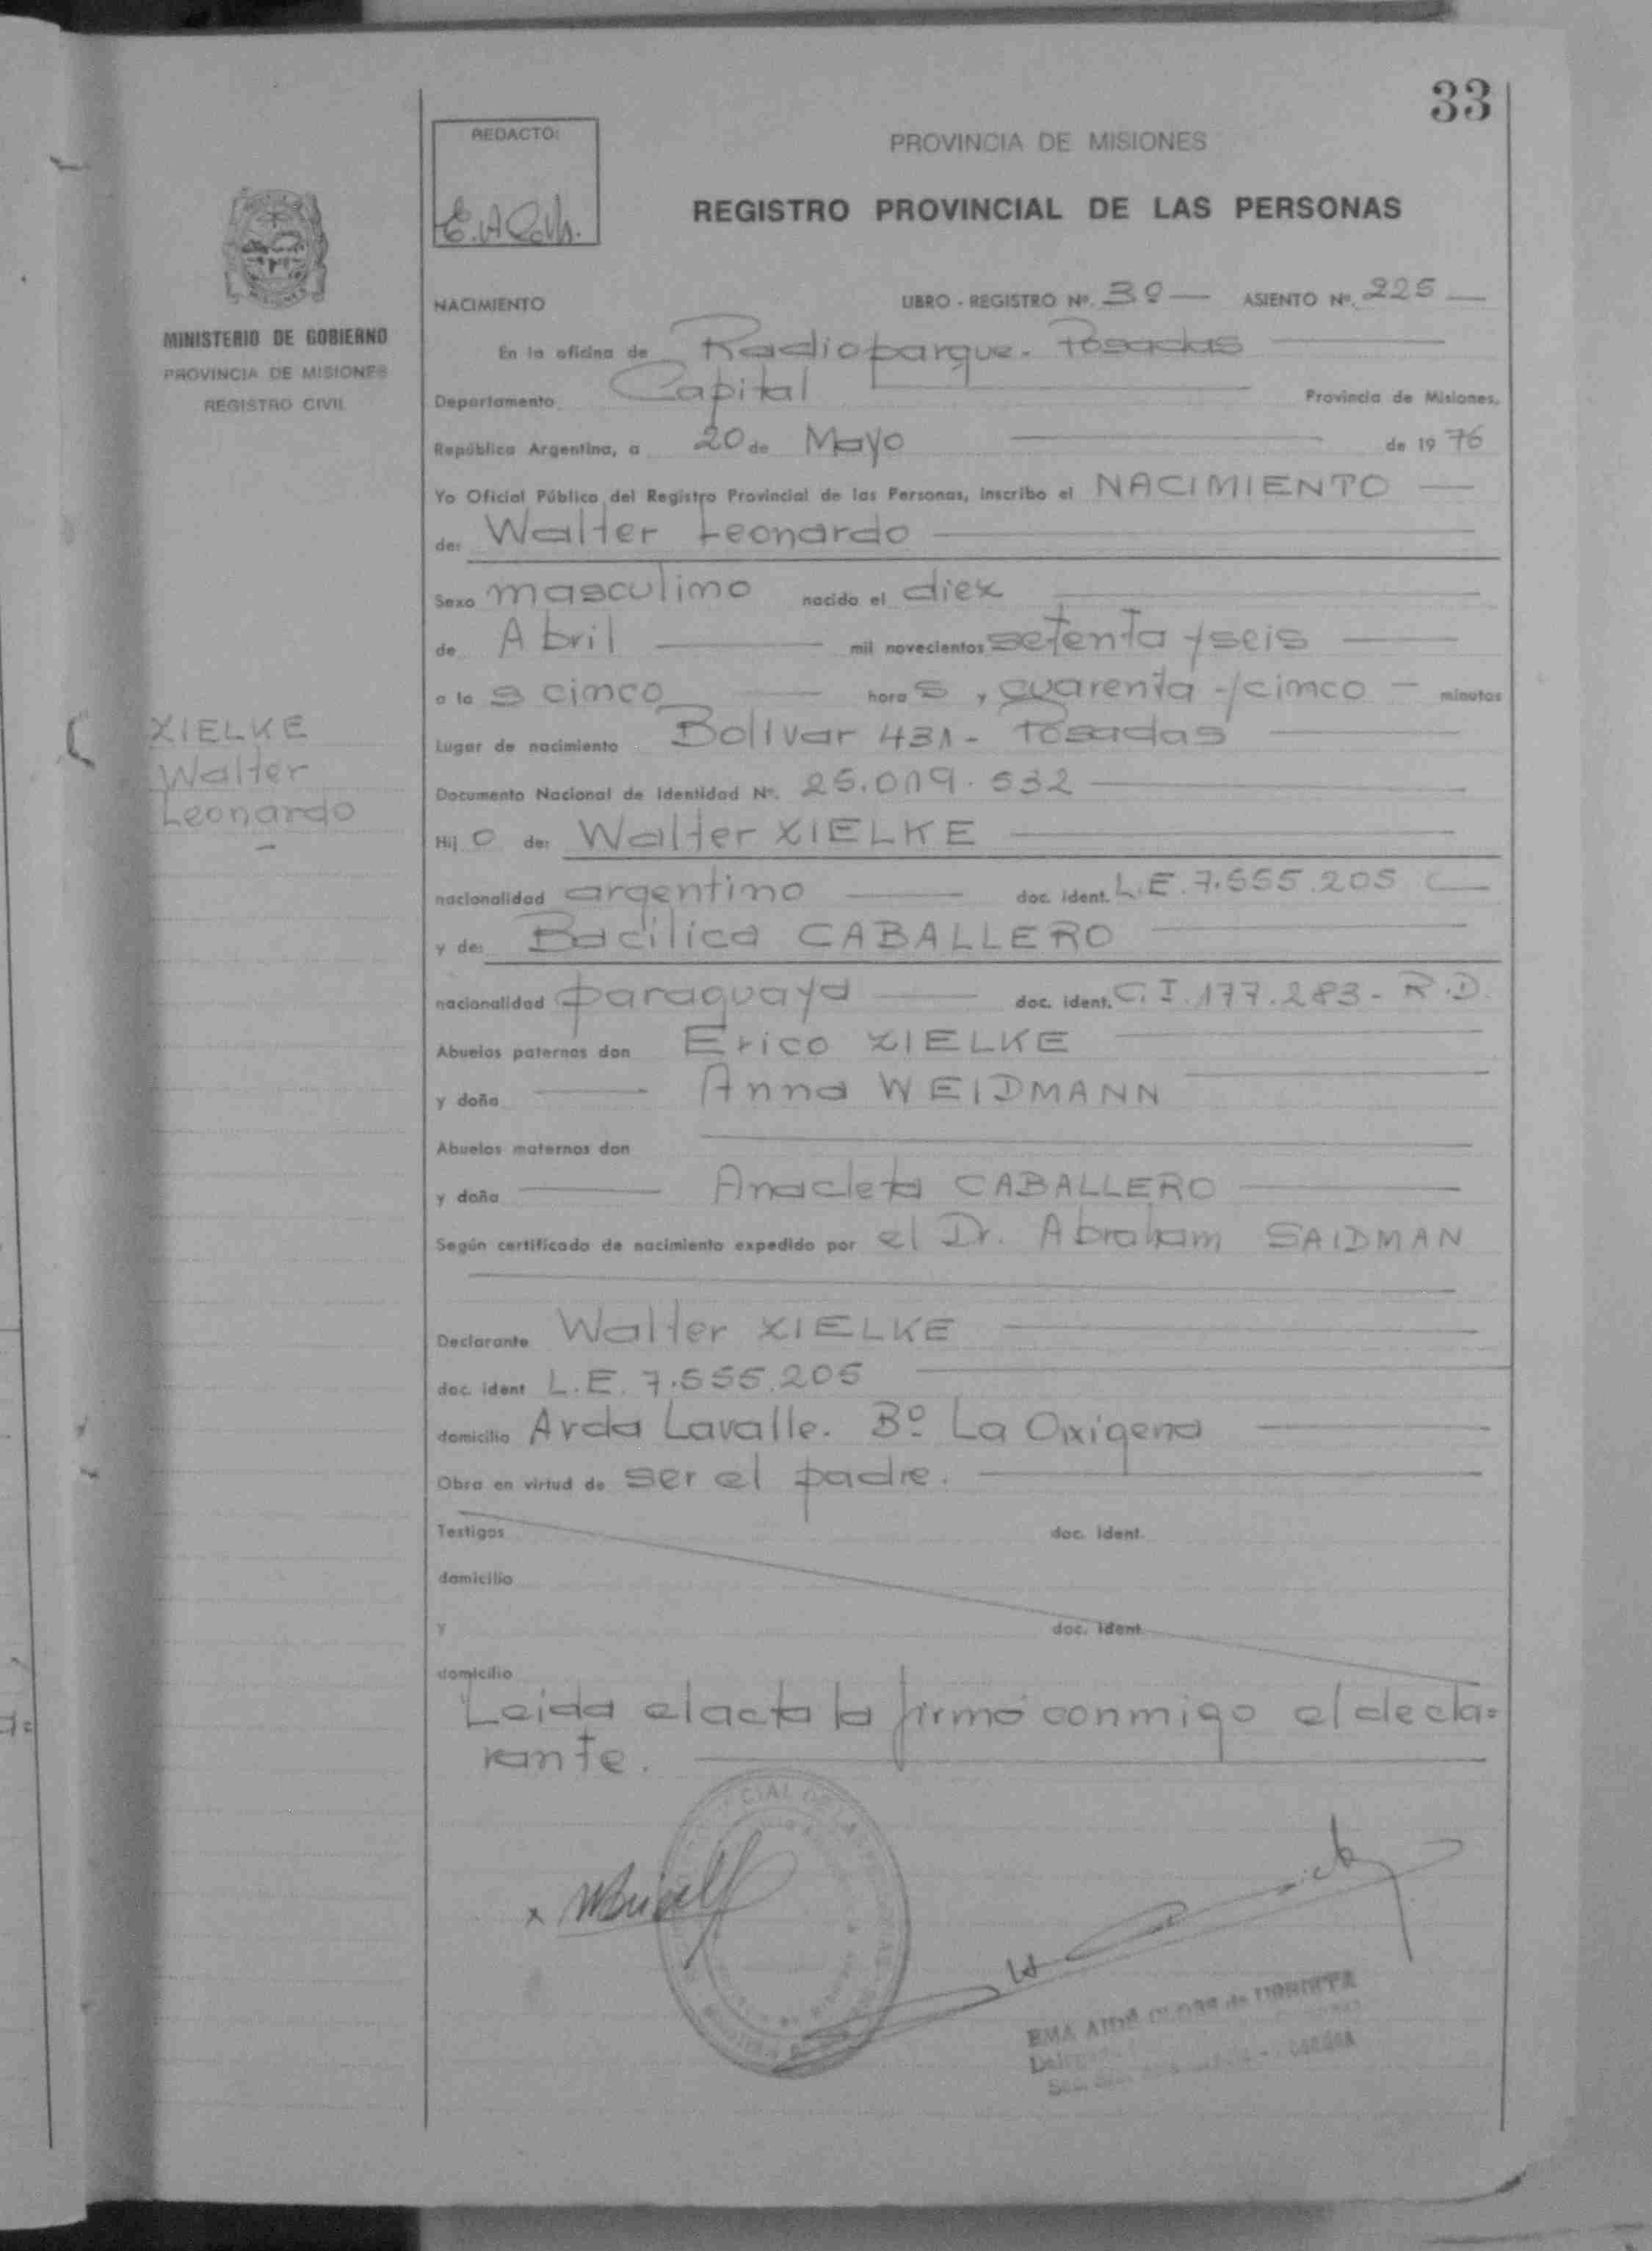 33
REDACTÓ:
PROVINCIA DE MISIONES
REGISTRO PROVINCIAL DE LAS PERSONAS
MINISTERIO DE GOBIERNO
PROVINCIA DE MISIONES
REGISTRO CIVIL
NACIMIENTO LIBRO - REGISTRO Nº. 3º ASIENTO Nº. 225
En la oficina de Radioparque. Posadas
Departamento Capital Provincia de Misiones,
República Argentina, a 20 de Mayo de 1976
Yo Oficial Público del Registro Provincial de las Personas, inscribo el NACIMIENTO
de: Walter Leonardo
Sexo masculino nacido el diez
de Abril mil novecientos setenta y seis
a la s cinco hora s, cuarenta y cinco minutos
ZIELKE
Walter
Leonardo
Lugar de nacimiento Bolivar 431 - Posadas
Documento Nacional de Identidad Nº. 25.019.532
Hij o de: Walter ZIELKE
nacionalidad argentino doc. ident. L.E. 7.555.205
y de: Bacilica CABALLERO
nacionalidad paraguaya doc. ident. C.I. 177.283 - R.D.
Abuelos paternos don Erico ZIELKE
y doña Anna WEIDMANN
Abuelos maternos don
y doña Anacleta CABALLERO
Según certificado de nacimiento expedido por el Dr. Abraham SAIDMAN
Declarante Walter ZIELKE
doc. ident L.E. 7.555.205
domicilio Avda Lavalle. Bº La Oxigena
Obra en virtud de ser el padre.
Testigos doc. ident.
domicilio
y doc. ident.
domicilio
Leida el acta la firmó conmigo el decla=
rante.
EMA